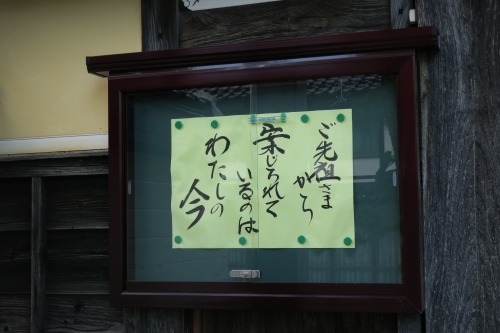 ご先祖さま
から
案じられて
いるのは
わたしの
今